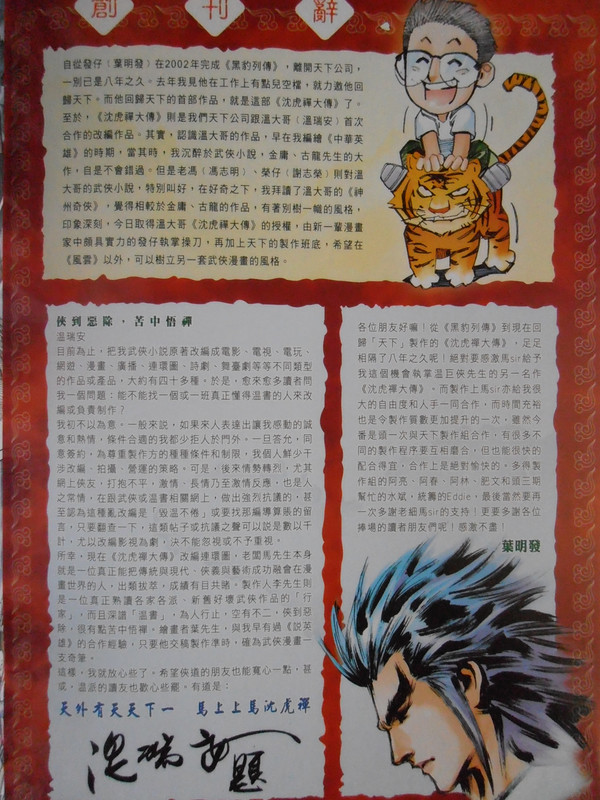 創刊辭
自從發仔(葉明發)在2002年完成《黑豹列傳》,離開天下公司,
一別已是八年之久。去年我見他在工作上有點兒空檔,就力邀他回
歸天下。而他回歸天下的首部作品,就是這部《沈虎禪大傳》了。
至於,《沈虎禪大傳》則是我們天下公司跟溫大哥(溫瑞安)首次
合作的改編作品。其實,認識溫大哥的作品,早在我編繪《中華英
雄》的時期,當其時,我沉醉於武俠小說,金庸、古龍先生的大
作,自是不會錯過。但是老馮(馮志明)、榮仔(謝志榮)則對溫
大哥的武俠小說,特別叫好,在好奇之下,我拜讀了溫大哥的《神
州奇俠》,覺得相較於金庸、古龍的作品,有著別樹一幟的風格,
印象深刻,今日取得溫大哥《沈虎禪大傳》的授權,由新一輩漫畫
家中頗具實力的發仔執掌操刀,再加上天下的製作班底,希望在
《風雲》以外,可以樹立另一套武俠漫畫的風格。
俠到惡除,苦中悟禪
溫瑞安
目前為止,把我武俠小說原著改編成電影、電視、電玩、
網遊、漫畫、廣播、連環圖、詩劇、舞臺劇等等不同類型
的作品或產品,大約有四十多種,於是,愈來愈多讀者問
我一個問題:能不能找一個或一班真正懂得溫書的人來改
編或負責制作?
我初不以為意,一般來說,如果來人表達出讓我感動的誠
意和熱情,條件合適的我都少拒人於門外。一旦答允,同
意簽約,為尊重製作方的種種條件和制限,我個人鮮少干
涉改編、拍攝、營運的策略,可是,後來情勢轉烈,尤其
網上俠友,打抱不平,激情、長情乃至激情反應,也是人
之常情,在跟武俠或溫書相關網上,做出強烈抗議的,甚
至認為這種亂改編是「毀溫不倦」或要找那編導算賬的留
言,只要翻查一下,這類帖子或抗議之聲可以說是數以千
計,尤以改編影視為劇,決不能忽視或不予重視。
所幸,現在《沈虎禪大傳》改編連環圖,老闆馬先生本身
就是一位真正能把傳統與現代、俠義與藝術成功融會在漫
畫世界的人,出類拔萃,成績有目共睹。製作人李先生則
是一位真正熟讀各家各派、新舊好壞武俠作品的「行
家」,而且深諳「溫書」,為人行止,空有不二,俠到惡
除,很有點苦中悟禪。繪畫者葉先生,與我早有過《說英
雄》的合作經驗,只要他交稿製作準時,確為武俠漫畫一
支奇筆。
這樣,我就放心些了。希望俠道的朋友也能寬心一點,甚
或,溫派的讀友也歡心些罷。有道是:
天外有天天下一 馬上上馬沈虎禪
溫瑞安題
各位朋友好嘛!從《黑豹列傳》到現在回
歸「天下」製作的《沈虎禪大傳》,足足
相隔了八年之久呢!絕對要感激馬sir給予
我這個機會執掌溫巨俠先生的另一名作
《沈虎禪大傳》。而製作上馬sir亦給我很
大的自由度和人手一同合作,而時間充裕
也是令製作質數更加提升的一切,雖然今
番是頭一次與天下製作組合作,有很多不
同的製作程序要互相磨合,但也能很快的
配合得宜,合作上是絕對愉快的,多得製
作組的阿亮、阿春、阿林、肥文和頭三期
幫忙的水斌,統籌的Eddie,最後當然要再
一次多謝老細馬sir的支持!更要多謝各位
捧場的讀者朋友們呢!感激不盡!
葉明發